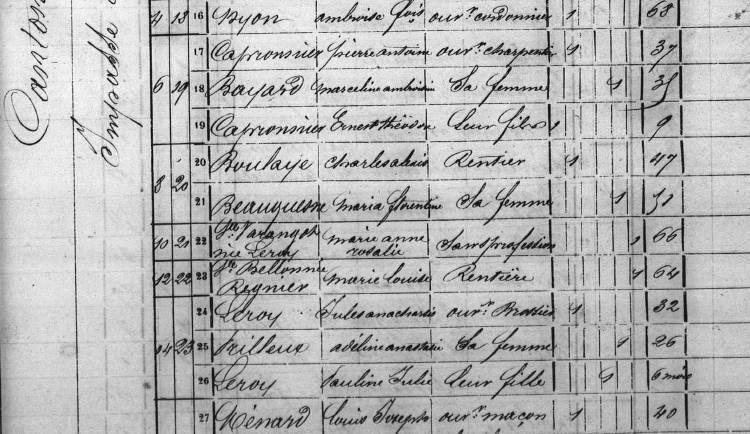 Canton
Impasse
4 13 16 Dyon ambroise fçois ouvr. cordonnier 1 63
17 Capronnier pierre antoine ouvr. charpentier 1 37
6 19 18 Bayard marceline ambroisine Sa femme 1 35
19 Capronnier Ernest théodore leur fils 1 9
20 Boulaye charles alexis Rentier 1 47
8 20
21 Beauquesne maria florentine Sa femme 1 51
10 21 22 Ve. Varangot née Leroy marie anne rosalie Sans profession 1 66
12 22 23 Ve. Bellonnie Regnier marie louise Rentière 1 64
24 Leroy Jules anacharsis ouvr. Brossier 1 32
14 23 25 Prilleux adéline anastasie Sa femme 1 26
26 Leroy Pauline Julie leur fille 1 6 mois
27 Ménard louis Joseph ouvr. maçon 1 40